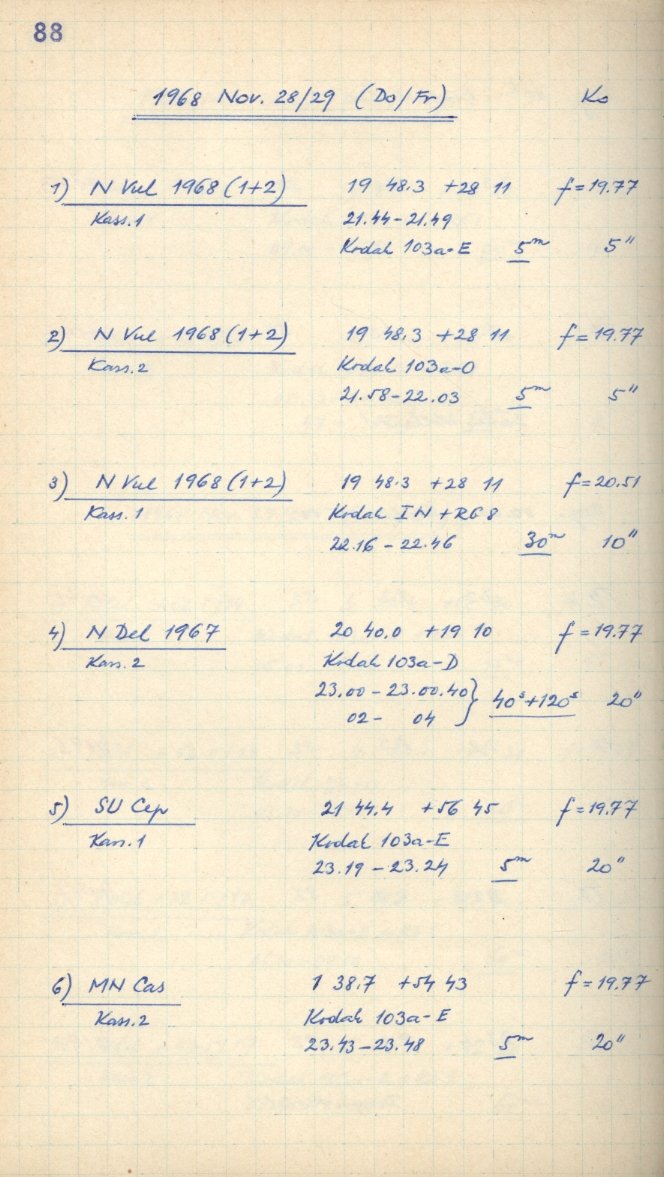 88
1968 Nov. 28/29 (Do/Fr) Ko
1) N Vul 1968 (1+2) 19 48.3 +28 11 f=19.77
Kass.1 21.44-21.49
Kodak 103a-E 5m 5"
2) N Vul 1968 (1+2) 19 48.3 +28 11 f=19.77
Kass.2 Kodak 103a-O
21.58-22.03 5m 5"
3) N Vul 1968 (1+2) 19 48.3 +28 11 f=20.51
Kass.1 Kodak IN+RG8
22.16-22.46 30m 10"
4) N Del 1967 20 40.0 +19 10 f=19.77
Kass.2 Kodak 103a-D
23.00-23.00.40 } 40s+120s 20"
02- 04
5) SU Cep 21 44.4 +56 45 f=19.77
Kass.1 Kodak 103a-E
23.19-23.24 5m 20"
6) MN Cas 1 38.7 +54 43 f=19.77
Kass.2 Kodak 103a-E
23.43-23.48 5m 20"